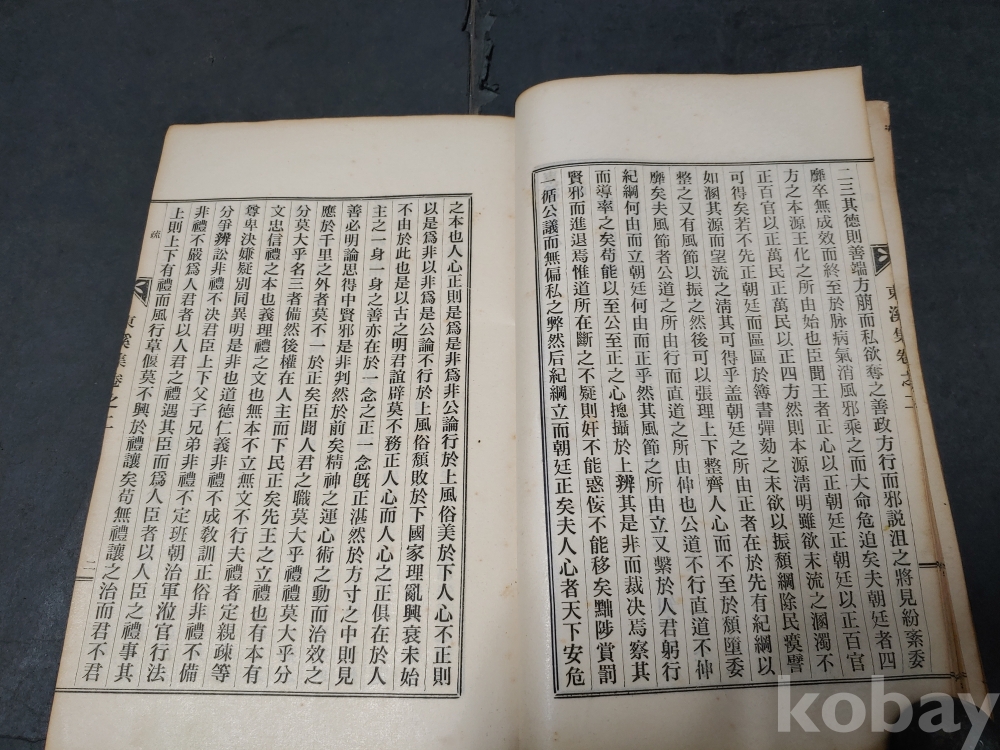 二三其德則善端方萠而私欲奪之善政方行而邪說沮之將見紛紊委
靡卒無成效而終至於脉病氣消風邪乘之而大命危迫矣夫朝廷者四
方之本源王化之所由始也臣聞王者正心以正朝廷正朝廷以正百官
正百官以正萬民正萬民以正四方然則本源淸明雖欲末流之溷濁不
可得矣若不先正朝廷而區區於簿書彈劾之末欲以振頹綱除民瘼譬
如溷其源而望流之淸其可得乎盖朝廷之所由正者在於先有紀綱以
整之又有風節以振之然後可以張理上下整齊人心而不至於頹墮委
靡矣夫風節者公道之所由行而直道之所由伸也公道不行直道不伸
紀綱何由而立朝廷何由而正乎然其風節之所由立又繫於人君躬行
而導率之矣苟能以至公至正之心摠攝於上辨其是非而裁决焉察其
賢邪而進退焉惟道所在斷之不疑則奸不能惑侫不能移矣黜陟賞罰
一循公議而無偏私之弊然后紀綱立而朝廷正矣夫人心者天下安危
東溪集卷之二
之本也人心正則是爲是非爲非公論行於上風俗美於下人心不正則
以是爲非以非爲是公論不行於上風俗頹敗於下國家理亂興衰未始
不由於此也是以古之明君誼辟莫不務正人心而人心之正俱在於人
主之一身一身之善亦在於一念之正一念旣正湛然於方寸之中則見
善必明論思得中賢邪是非判然於前矣精神之運心術之動而治效之
應於千里之外者莫不一於正矣臣聞人君之職莫大乎禮禮莫大乎分
分莫大乎名三者備然後權在人主而下民正矣先王之立禮也有本有
文忠信禮之本也義理禮之文也無本不立無文不行夫禮者定親疎等
尊卑決嫌疑別同異明是非也道德仁義非禮不成敎訓正俗非禮不備
分爭辨訟非禮不决君臣上下父子兄弟非禮不定班朝治軍涖官行法
非禮不嚴爲人君者以人君之禮遇其臣而爲人臣者以人臣之禮事其
上則上下有禮而風行草偃莫不興於禮讓矣苟無禮讓之治而君不君
疏
東溪集卷之二
二
kobay